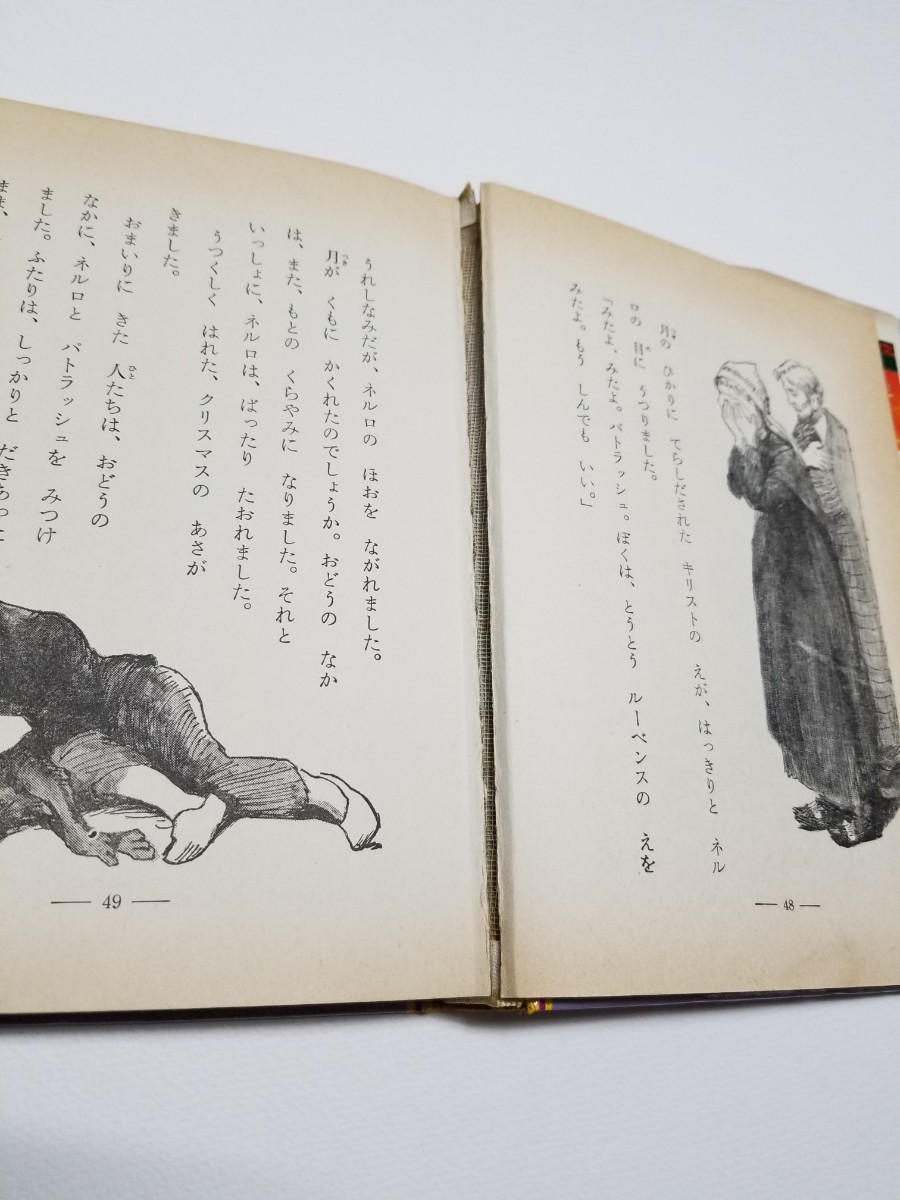 月の ひかりに てらしだされた キリストの えが、はっきりと ネル
ロの 目に うつりました。
「みたよ、みたよ。パトラッシュ。ぼくは、とうとう ルーベンスの えを
みたよ。もう しんでも いい。」
— 48 —
うれしなみだが、ネルロの ほおを ながれました。
月が くもに かくれたのでしょうか。おどうの なか
は、また、もとの くらやみに なりました。それと
いっしょに、ネルロは、ばったり たおれました。
うつくしく はれた、クリスマスの あさが
きました。
おまいりに きた 人たちは、おどうの
なかに、ネルロと パトラッシュを みつけ
ました。ふたりは、しっかりと だきあった
まま、
— 49 —